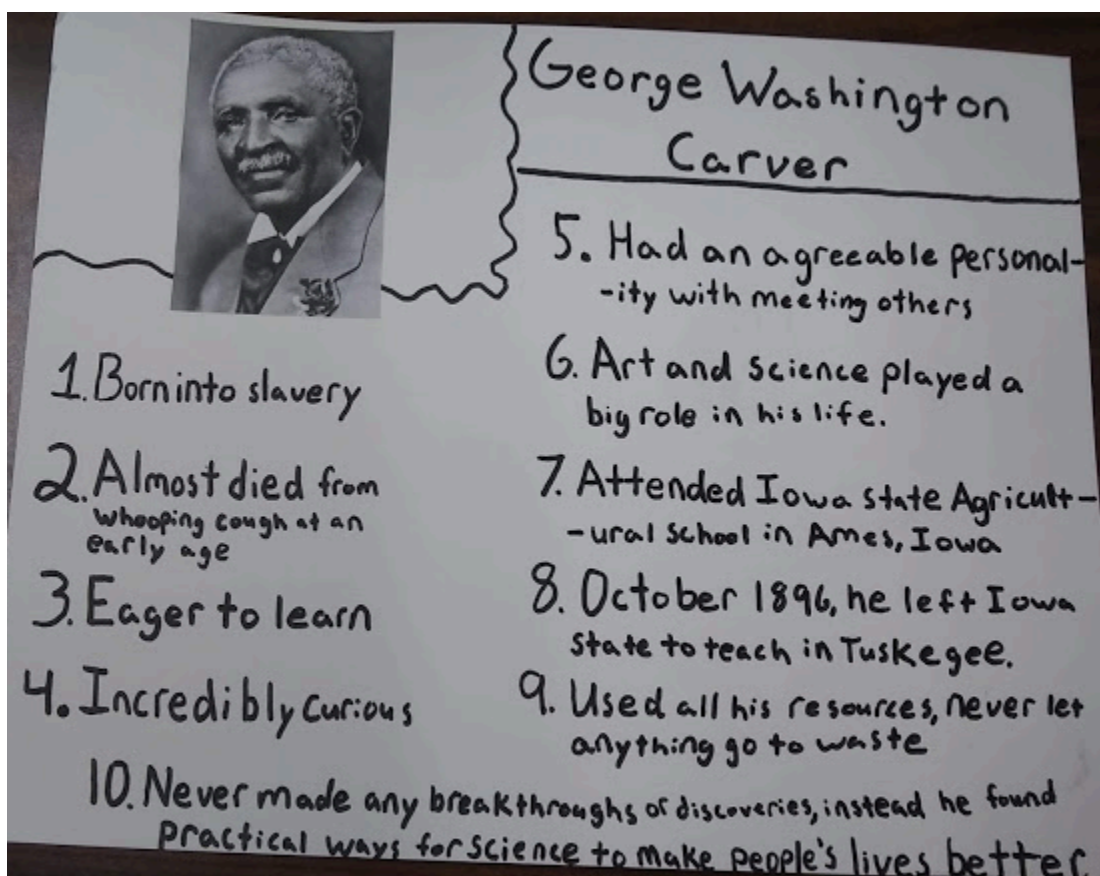 George Washington
Carver
1. Born into slavery
2. Almost died from
whooping cough at an
early age
3. Eager to learn
4. Incredibly curious
5. Had an agreeable personal-
-ity with meeting others
6. Art and science played a
big role in his life.
7. Attended Iowa state Agricult-
-ural school in Ames, Iowa
8. October 1896, he left Iowa
state to teach in Tuskegee.
9. Used all his resources, never let
anything go to waste
10. Never made any breakthroughs or discoveries, instead he found
practical ways for science to make people's lives better